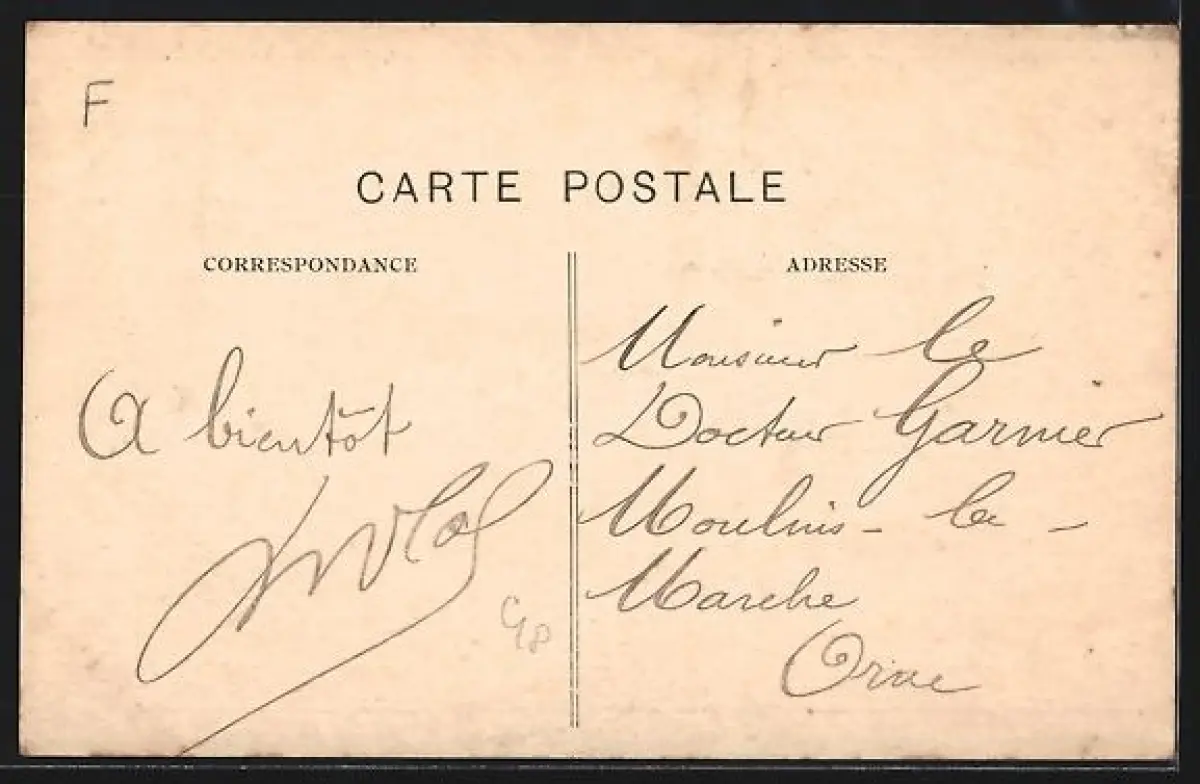 F
CARTE POSTALE
CORRESPONDANCE
A bientôt
ADRESSE
Monsieur le
Docteur Garnier
Moulins-la-
Marche
Orne